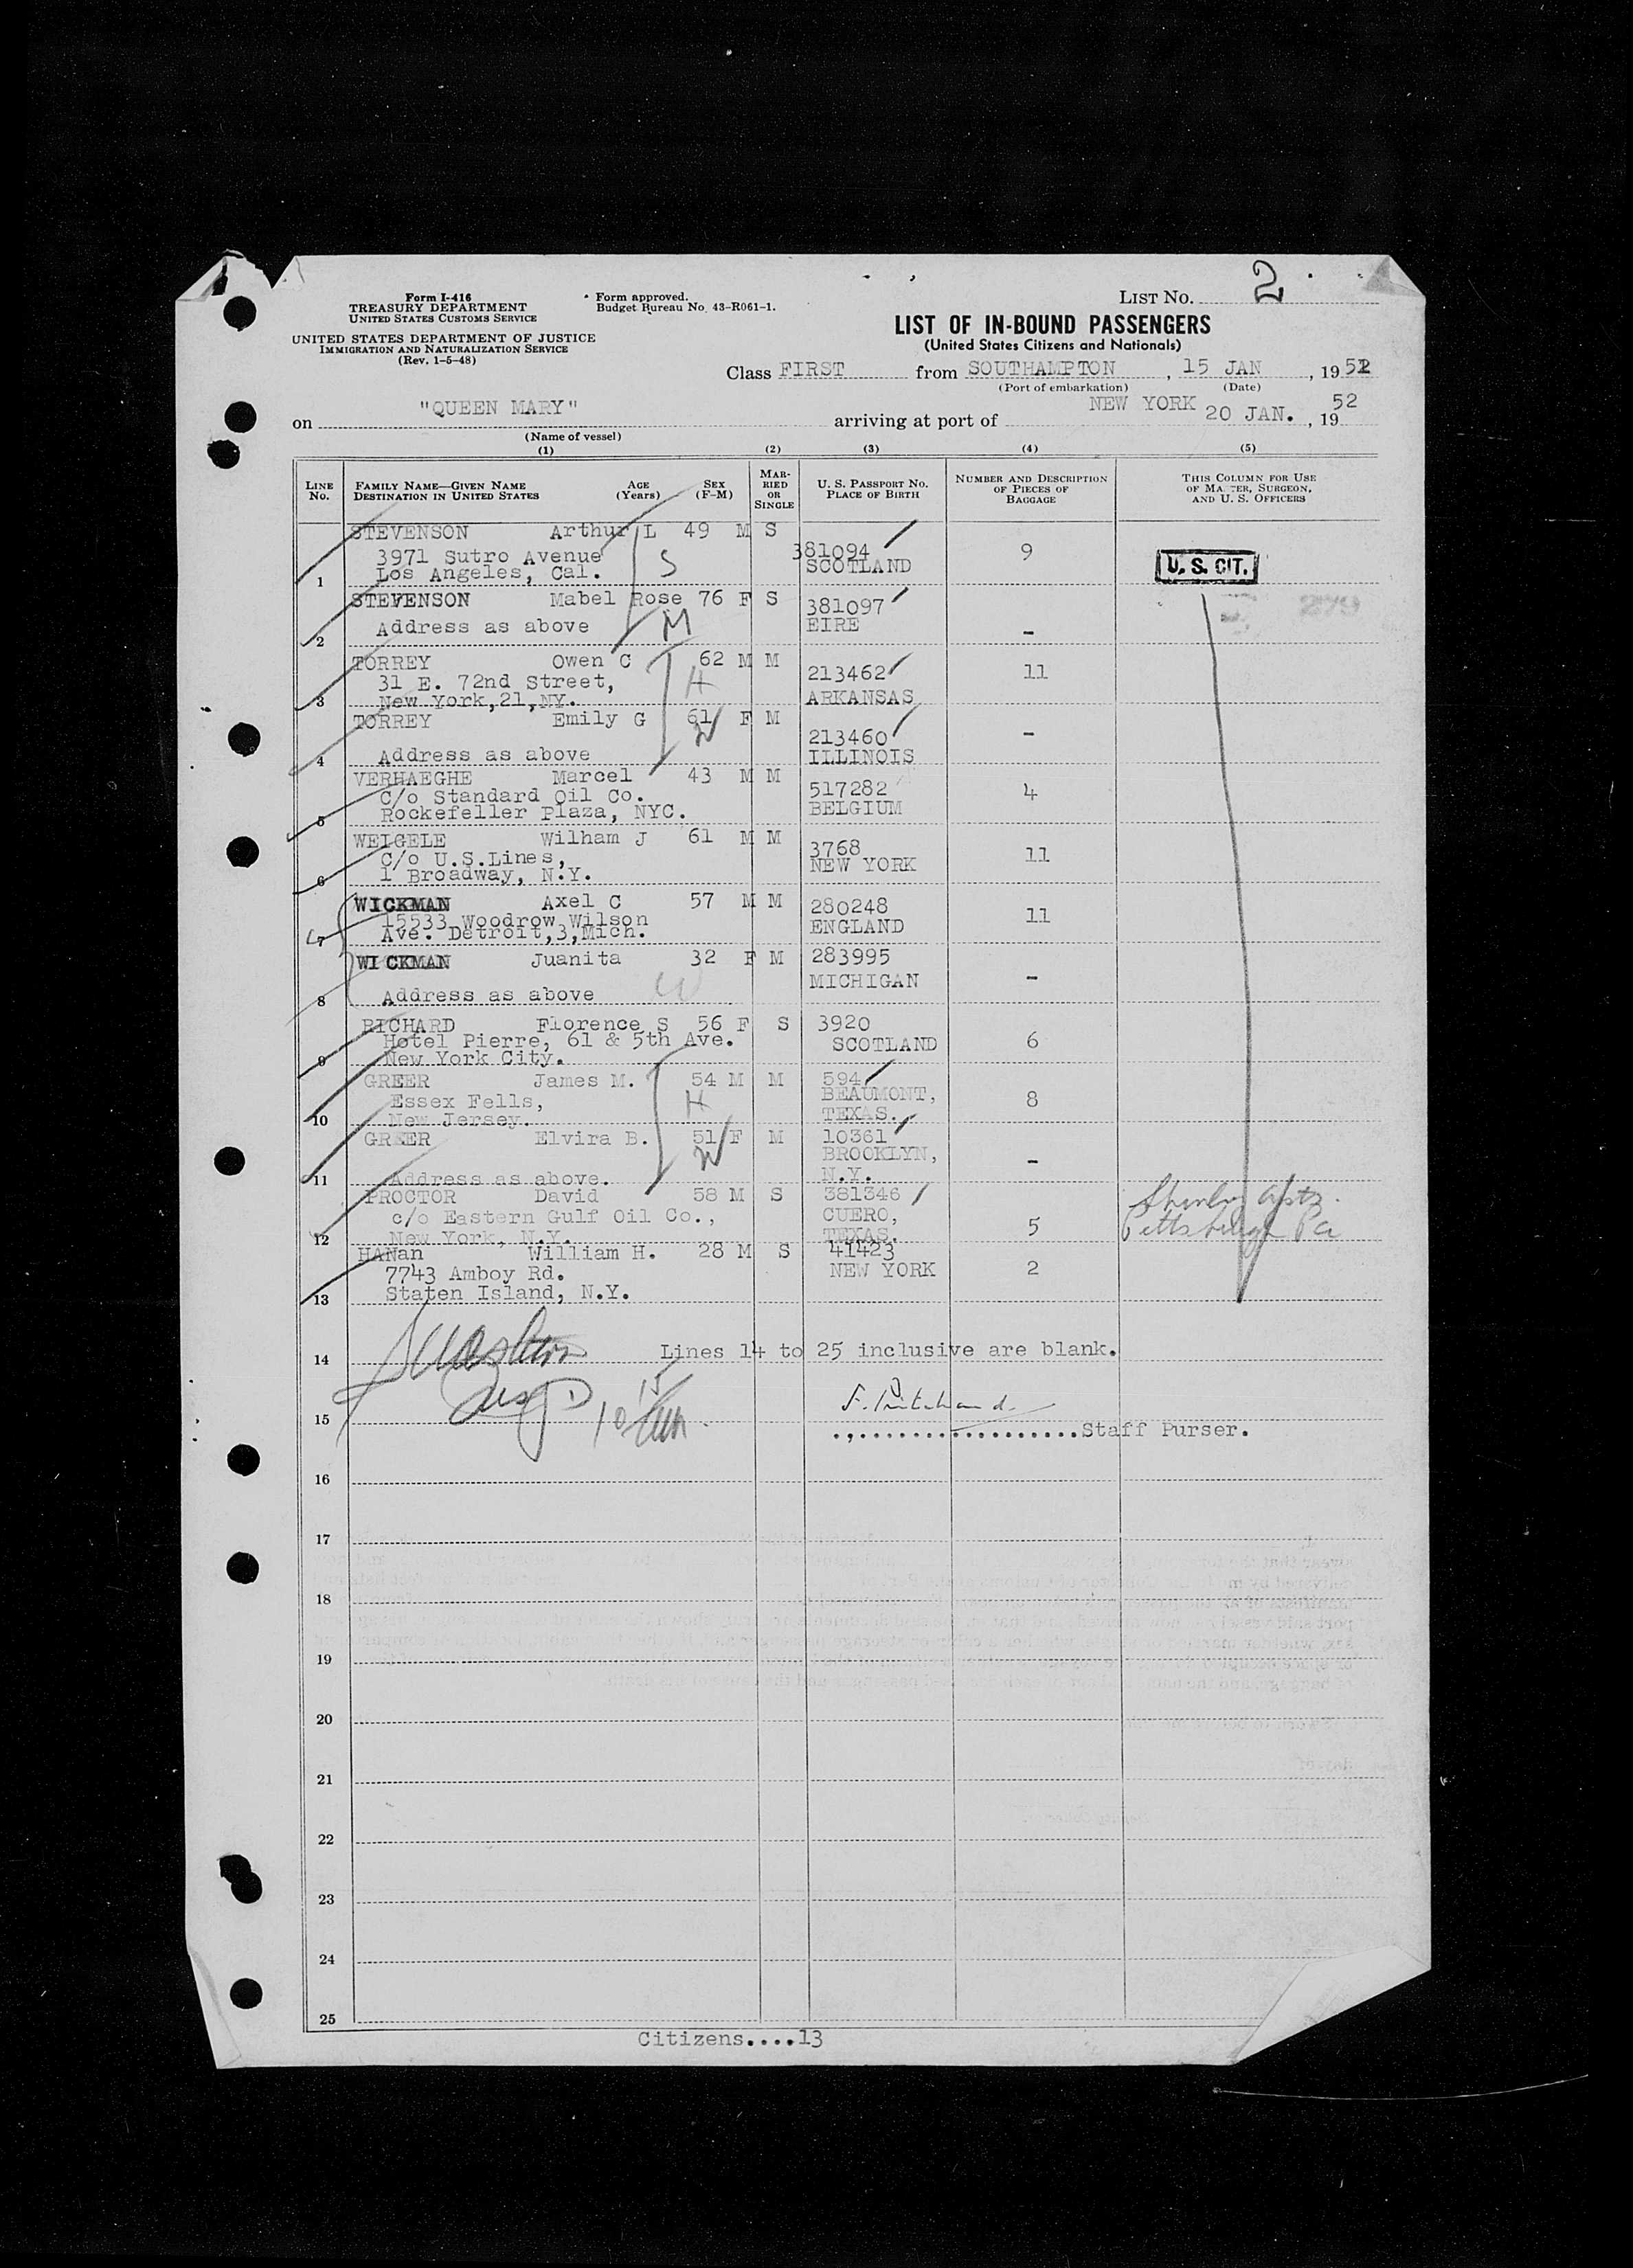 Form I-416
TREASURY DEPARTMENT
UNITED STATES CUSTOMS SERVICE
UNITED STATES DEPARTMENT OF JUSTICE
IMMIGRATION AND NATURALIZATION SERVICE
(Rev. 1-5-48)
Form approved.
Budget Bureau No. 43-R061-1.
LIST NO. 2
LIST OF IN-BOUND PASSENGERS
(United States Citizens and Nationals)
Class FIRST from SOUTHAMPTON, 15 JAN, 1952
(Port of embarkation) (Date)
on "QUEEN MARY" arriving at port of NEW YORK 20 JAN., 1952
(Name of vessel)
(1) (2) (3) (4) (5)
LINE NO. FAMILY NAME—GIVEN NAME DESTINATION IN UNITED STATES AGE (Years) SEX (F-M) MARRIED OR SINGLE U. S. PASSPORT NO. PLACE OF BIRTH NUMBER AND DESCRIPTION OF PIECES OF BAGGAGE THIS COLUMN FOR USE OF MASTER, SURGEON, AND U. S. OFFICERS
STEVENSON Arthur L 49 M S
3971 Sutro Avenue S 381094 9
Los Angeles, Cal. SCOTLAND U. S. CIT.
1
STEVENSON Mabel Rose 76 F S 381097 279
Address as above M EIRE -
2
TORREY Owen C 62 M M
31 E. 72nd Street, H 213462 11
New York,21,NY. ARKANSAS
3
TORREY Emily G 61 F M
W 213460 -
Address as above ILLINOIS
4
VERHAEGHE Marcel 43 M M
C/o Standard Oil Co. 517282 4
Rockefeller Plaza, NYC. BELGIUM
5
WEIGELE Wilham J 61 M M 3768
C/o U.S.Lines, NEW YORK 11
1 Broadway, N.Y.
6
WICKMAN Axel C 57 M M 280248
15533 Woodrow Wilson ENGLAND 11
Ave. Detroit,3,Mich.
7
WICKMAN Juanita 32 F M 283995
MICHIGAN -
Address as above W
8
RICHARD Florence S 56 F S 3920
Hotel Pierre, 61 & 5th Ave. SCOTLAND 6
New York City.
9
GREER James M. 54 M M 594
Essex Fells, H BEAUMONT, 8
New Jersey. TEXAS.
10
GREER Elvira B. 51 F M 10361
W BROOKLYN, -
Address as above. N.Y.
11
PROCTOR David 58 M S 381346
c/o Eastern Gulf Oil Co., CUERO, 5 Pittsburgh Pa
New York, N.Y. TEXAS.
12
HANan William H. 28 M S 41423
7743 Amboy Rd. NEW YORK 2
Staten Island, N.Y.
13
14 Lines 14 to 25 inclusive are blank.
F. Pritchard.
15 Staff Purser.
16
17
18
19
20
21
22
23
24
25
Citizens....13